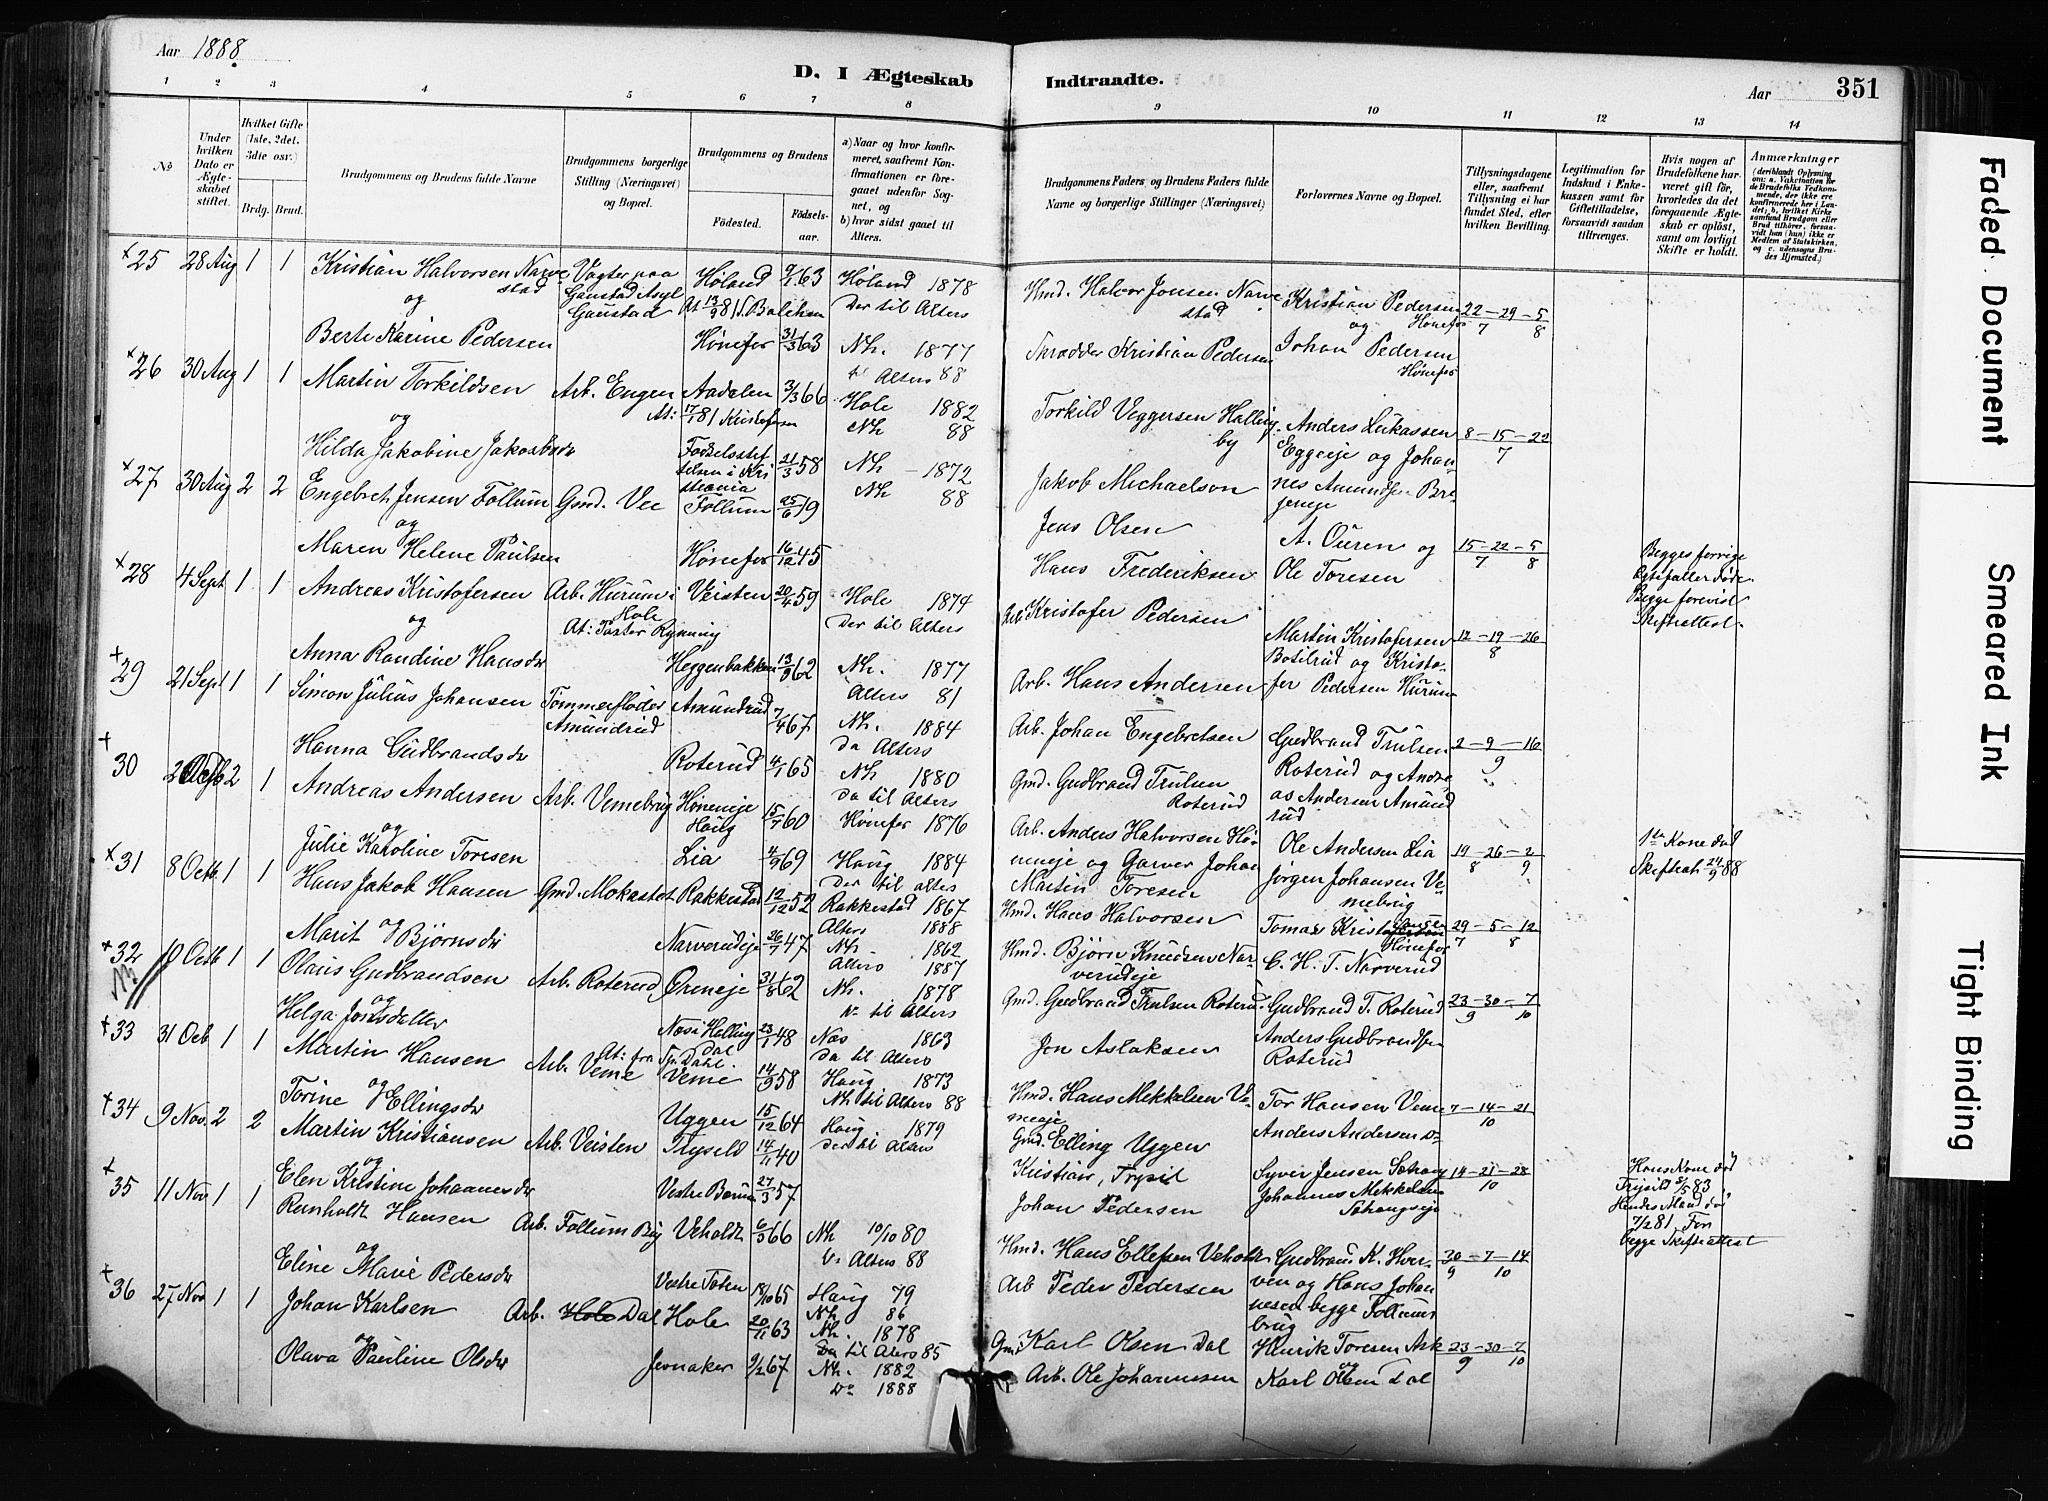 Aar 1888.
D. I Ægteskab Indtraadte.
Aar 351
1 2 3 4 5 6 7 8 9 10 11 12 13 14
No
Under hvilken Dato er Ægteskabet stiftet.
Hvilket Gifte (1ste, 2det, 3die osv.)
Brdg. Brud.
Brudgommens og Brudens fulde Navne
Brudgommens borgerlige Stilling (Næringsvei) og Bopæl.
Brudgommens og Brudens
Fødested. Fødselsaar.
a) Naar og hvor konfirmeret, saafremt Konfirmationen er foregaaet udenfor Sognet, og
b) hvor sidst gaaet til Alters.
Brudgommens Faders, og Brudens Faders fulde Navne og borgerlige Stillinger (Næringsvei)
Forlovernes Navne og Bopæl.
Tillysningsdagene eller, saafremt Tillysning ei har fundet Sted, efter hvilken Bevilling.
Legitimation for Indskud i Enkekassen samt for Giftetilladelse, forsaavidt saadan tiltrænges.
Hvis nogen af Brudefolkene har været gift før, hvorledes da det foregaaende Ægteskab er opløst, samt om lovligt Skifte er holdt.
Anmærkninger
25 28 Aug 1 1 Kristian Halvorsen Narvestad Vagter paa Gaustad Asyl Gaustad Høland 9/1 63 Høland 1878 Der til Alters Hmd. Halvor Jonsen Narvestad Kristian Pedersen Hønefos 22-29-5 7 8
og
Berte Karine Pedersen Hønefos 31/3 63 Nh. 1877 til Alters 88 Skrædder Kristian Pedersen Johan Pedersen Hønefos
26 30 Aug 1 1 Martin Torkildsen Arb. Engen Aadalen 3/3 66 Hole 1882 Nh 88 Torkild Veggersen Hallingby Anders Lukassen Eggeeje og Johannes 8-15-22 7
og
Hilda Jakobine Jakobsdr Fødselsstiftelsen i Kristiania 21/3 58 Nh 1872 Nh 88 Jakob Michaelson
27 30 Aug 2 2 Engebret Jensen Follum Gmd. Vee Follum 25/6 19 Jens Olsen A. Ouren og 15-22-5 7 8 Begges forrige Ægtefæller døde Begge forevist Skifteattest
og
Maren Helene Paulsen Hønefos 16/12 45 Hans Frederiksen Ole Toresen
28 4 Sept 1 1 Andreas Kristofersen Arb. Hurum i Hole Veisten 20/4 59 Hole 1874 Der til Alters Arb Kristofer Pedersen Martin Kristofersen Botilrud og Kristofer Pedersen Hurum 12-19-26 8
og
Anna Randine Hansdr Heggenbakken 13/9 62 Nh. 1877 Alters 81 Arb. Hans Andersen
29 21 Sept 1 1 Simon Julius Johansen Tømmerfløder Amundrud Amundrud 7/4 67 Nh. 1884 Da Alters Arb. Johan Engebretsen Gudbrand Trulsen Roterud og Andreas Andersen Amundrud 2-9-16 9
Hanna Gudbrandsdr Roterud 4/1 65 Nh 1880 Da til Alters Gmd. Gudbrand Trulsen Roterud
30 2 Octb 2 1 Andreas Andersen Arb. Vemebrug Høneneje Haug 15/7 60 Hønefos 1876 Arb. Anders Halvorsen Høneneje og Garver Johan Martin Toresen Ole Andersen Lia Jørgen Johansen Vemebrug 19-26-2 8 9 1ste Kone død Skifteatt 24/9 88
og
Julie Karoline Toresen Lia 4/9 69 Haug 1884 Der til alters
31 8 Octb. 1 1 Hans Jakob Hansen Gmd. Mokastet Rakkestad 12/12 52 Rakkestad 1867 Alters 1888 Hmd. Hans Halvorsen Tomas Hansen Hønefos 29-5-12 7 8
og
Marit Bjørnsdr Narverudeje 26/7 47 Nh. 1862 Alters 1887 Hmd. Bjørn Knudsen Narverudeje C. H. T. Narverud
32 10 Octb 1 1 Olaus Gudbrandsen Arb. Roterud Ørneneje 31/8 62 Nh. 1878 Do til Alters Gmd. Gudbrand Trulsen Roterud Gudbrand T. Roterud 23-30-7 9 10
og
Helga Jonsdatter Næs i Hallingdal 23/1 48 Næs 1863 Da til Alters Jon Aslaksen Anders Gudbrandsen Roterud
33 31 Octb 1 1 Martin Hansen Arb. Veme Veme 14/9 58 Haug 1873 Nh til Alters 88 Hmd. Hans Mekkelsen Vemeeje Tor Hansen Veme 7-14-21 10
og
Torine Ellingsdr Uggen 15/12 64 Haug 1879 Der til Alters Gmd. Elling Uggen Anders Andersen do
34 9 Nov. 2 2 Martin Kristiansen Arb. Veisten Trysild 14/11 40 Kristian, Trysil Syver Jensen Setrang 14-21-28 10 Hans Kone død Trysild 5/5 83 Hendes Mand død 7/2 81 For begge Skifteattest
og
Elen Kristine Johannesdr Vestre Bærum 27/3 57 Johan Pedersen Johannes Mekkelsen Setrangseje
35 11 Nov 1 1 Reinholdt Hansen Arb. Follum Brug Veholdt 6/3 66 Nh 10/10 80 Do Alters 88 Hmd. Hans Ellefsen Veholt Gudbrand K. Hverven og Hans Johannesen begge Follumsbrug 30-7-14 9 10
og
Eline Marie Pedersdr Vestre Toten 18/10 65 Haug 79 Nh. 86 Arb Peder Pedersen
36 27 Nov 1 1 Johan Karlsen Arb. Hole Dal Hole 20/11 63 Nh. 1878 Da til Alters 85 Gmd. Karl Olsen Dal Henrik Toresen Ask 23-30-7 9 10
og
Olava Pauline Olsdr Jevnaker 9/2 67 Nh. 1882 Do 1888 Arb. Ole Johannesen Karl Olsen Dal
Faded Document
Smeared Ink
Tight Binding